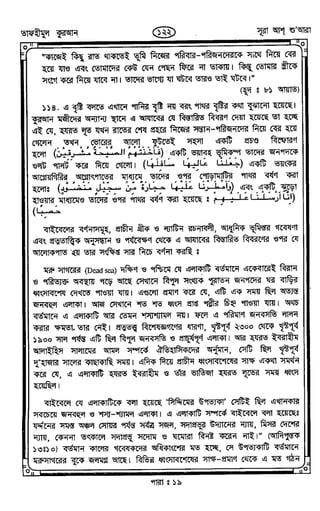 তাফহীমুল কুরআন
১২২
সূরা আশ্ শু'আরা
"কাজেই কিছু রাত থাকতেই তুমি নিজের পরিবার-পরিজনদেরকে সংগে নিয়ে বের
হয়ে যাও এবং তোমাদের কেউ যেন পেছন ফিরে না তাকায়। কিন্তু তোমার স্ত্রীকে
সংগে করে নিয়ে যাবে না। তাদের ভাগ্যে যা ঘটবে তারও তাই ঘটবে।"
(হূদ : ৮১ আয়াত)
১১৪. এ বৃষ্টি বলতে এখানে পানির বৃষ্টি নয় বরং পাথর বৃষ্টির কথা বুঝানো হয়েছে।
কুরআন মজীদের অন্যান্য স্থানে এ আযাবের যে বিস্তারিত বিবরণ দেয়া হয়েছে তা হচ্ছে
এই যে, হযরত লূত যখন রাতের শেষ প্রহরে নিজের সন্তান-পরিজনদের নিয়ে বের হয়ে
গেলেন তখন ভোরের আলো ফুটতেই সহসা একটি প্রচণ্ড বিস্ফোরণ
হলো (فَأَخَذَتْهُمُ الصَّيْحَةُ مُشْرِقِينَ) একটি ভয়াবহ ভূমিকম্প তাদের জনপদকে
ওলট পালট করে দিয়ে গেলো। (جَعَلْنَا عَالِيَهَا سَافِلَهَا) একটি ভয়ংকর
আগ্নেয়গিরির অগ্ন্যুৎপাতের মাধ্যমে তাদের ওপর পোড়ামাটির পাথর বর্ষণ করা
হলোঃ (وَأَمْطَرْنَا عَلَيْهَا حِجَارَةً مِّن سِجِّيلٍ مَّنضُودٍ) এবং একটি ঝড়ো
হাওয়ার মাধ্যমেও তাদের ওপর পাথর বর্ষণ করা হয়েছে : (إِنَّا أَرْسَلْنَا عَلَيْهِمْ
حَاصِبًا)
বাইবেলের বর্ণনাসমূহ, প্রাচীন গ্রীক ও ল্যাটিন রচনাবলী, আধুনিক ভূমিস্তর গবেষণা
এবং প্রত্নতাত্ত্বিক অনুসন্ধান ও পর্যবেক্ষণ থেকে এ আযাবের বিস্তারিত বিবরণের ওপর যে
আলোকপাত হয় তার সংক্ষিপ্ত সার নিচে বর্ণনা করছি :
মরু সাগরের (Dead sea) দক্ষিণ ও পশ্চিমে যে এলাকাটি বর্তমানে একেবারেই বিরান
ও পরিত্যক্ত অবস্থায় পড়ে আছে সেখানে বিপুল সংখ্যক পুরাতন জনপদের ঘর বাড়ির
ধ্বংসাবশেষ দেখতে পাওয়া যায়। এগুলো প্রমাণ করে যে, এটি এক সময় ছিল অত্যন্ত
জনবহুল এলাকা। আজ সেখানে শত শত ধ্বংস প্রাপ্ত পল্লীর চিহ্ন পাওয়া যায়। অথচ
বর্তমানে এ এলাকাটি আর তেমন শস্যশ্যামল নয়। ফলে এ পরিমাণ জনবসতি লালন
করার ক্ষমতা তার নেই। প্রত্নতত্ত্ব বিশেষজ্ঞগণের ধারণা, খৃষ্টপূর্ব ২৩০০ থেকে খৃষ্টপূর্ব
১৯০০ সাল পর্যন্ত এটি ছিল বিপুল জনবসতি ও প্রাচুর্যপূর্ণ এলাকা। আর হযরত ইবরাহীম
আলাইহিস সালামের আমল সম্পর্কে ঐতিহাসিকদের অনুমান, সেটি ছিল খৃষ্টপূর্ব
দু'হাজার সালের কাছাকাছি সময়। এদিক দিয়ে প্রাচীন ধ্বংসাবশেষের সাক্ষ্য একথা সমর্থন
করে যে, এ এলাকাটি হযরত ইবরাহীম ও তাঁর ভাতিজা হযরত লূতের সময় ধ্বংস
হয়েছিল।
বাইবেলে যে এলাকাটিকে বলা হয়েছে 'সিদ্দিমের উপত্যকা' সেটিই ছিল এখানকার
সবচেয়ে জনবহুল ও শস্য-শ্যামল এলাকা। এ এলাকাটি সম্পর্কে বাইবেলে বলা হয়েছেঃ
যর্দ্দনের সমস্ত অঞ্চল সোয়র পর্যন্ত সর্বত্র সজল, সদাপ্রভুর উদ্যানের ন্যায়, মিসর দেশের
ন্যায়, কেননা তৎকালে সদাপ্রভু সদোম ও ঘমোরা বিনষ্ট করেন নাই।" (আদিপুস্তক
১৩:১০) বর্তমান কালের গবেষকদের অধিকাংশের মত হচ্ছে, সে উপত্যকাটি বর্তমানে
মরুসাগরের বুকে জলমগ্ন আছে। বিভিন্ন ধ্বংসাবশেষের সাক্ষ্য-প্রমাণ থেকে এ মত গঠন
পারা : ১৯